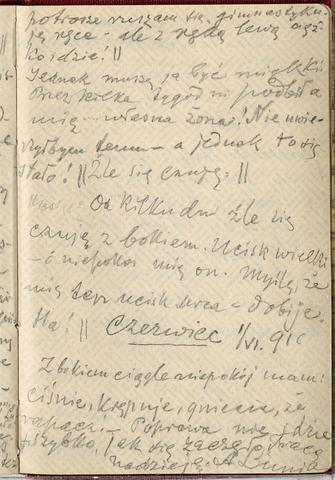 potrosze ruszam się, gimnastykuję
ją ręce - ale z ręką lewą cięż
ko idzie! ||
Jednak muszę ja być miękki
Przez kilka tygodni podbiła
mię - własna żona! Nie uwie-
rzyłbym temu - a jednak to się
stało! || Źle się czuję. ||
Od kilku dni źle się
czuję z bokiem. Ucisk wielki
- i niepokoi mię on. Myślę, że
mię ten ucisk serca - dobije.
Ha! || Czerwiec 1/VI. 91
Z bokiem ciągle niepokój mam:
ciśnie, krępuje, gniecie, że
Poprawa nie idzie
szybko, jak się zaczęło, tracę
nadzieję. A